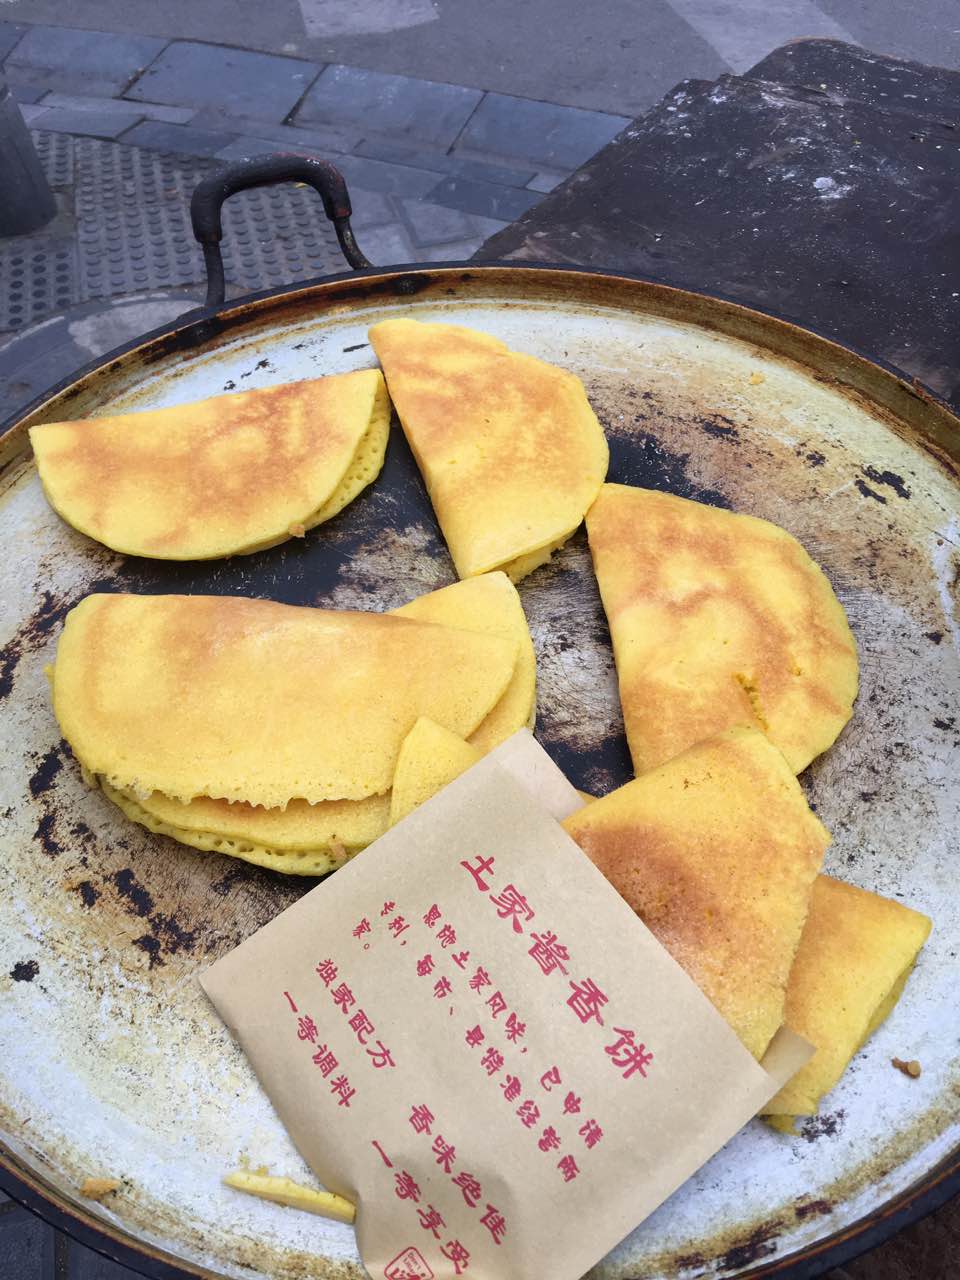 土家酱香饼
恩施土家风味，已申请
专利，每市、县特准经营两
家。
独家配方 香味绝佳
一等调料 一等享受